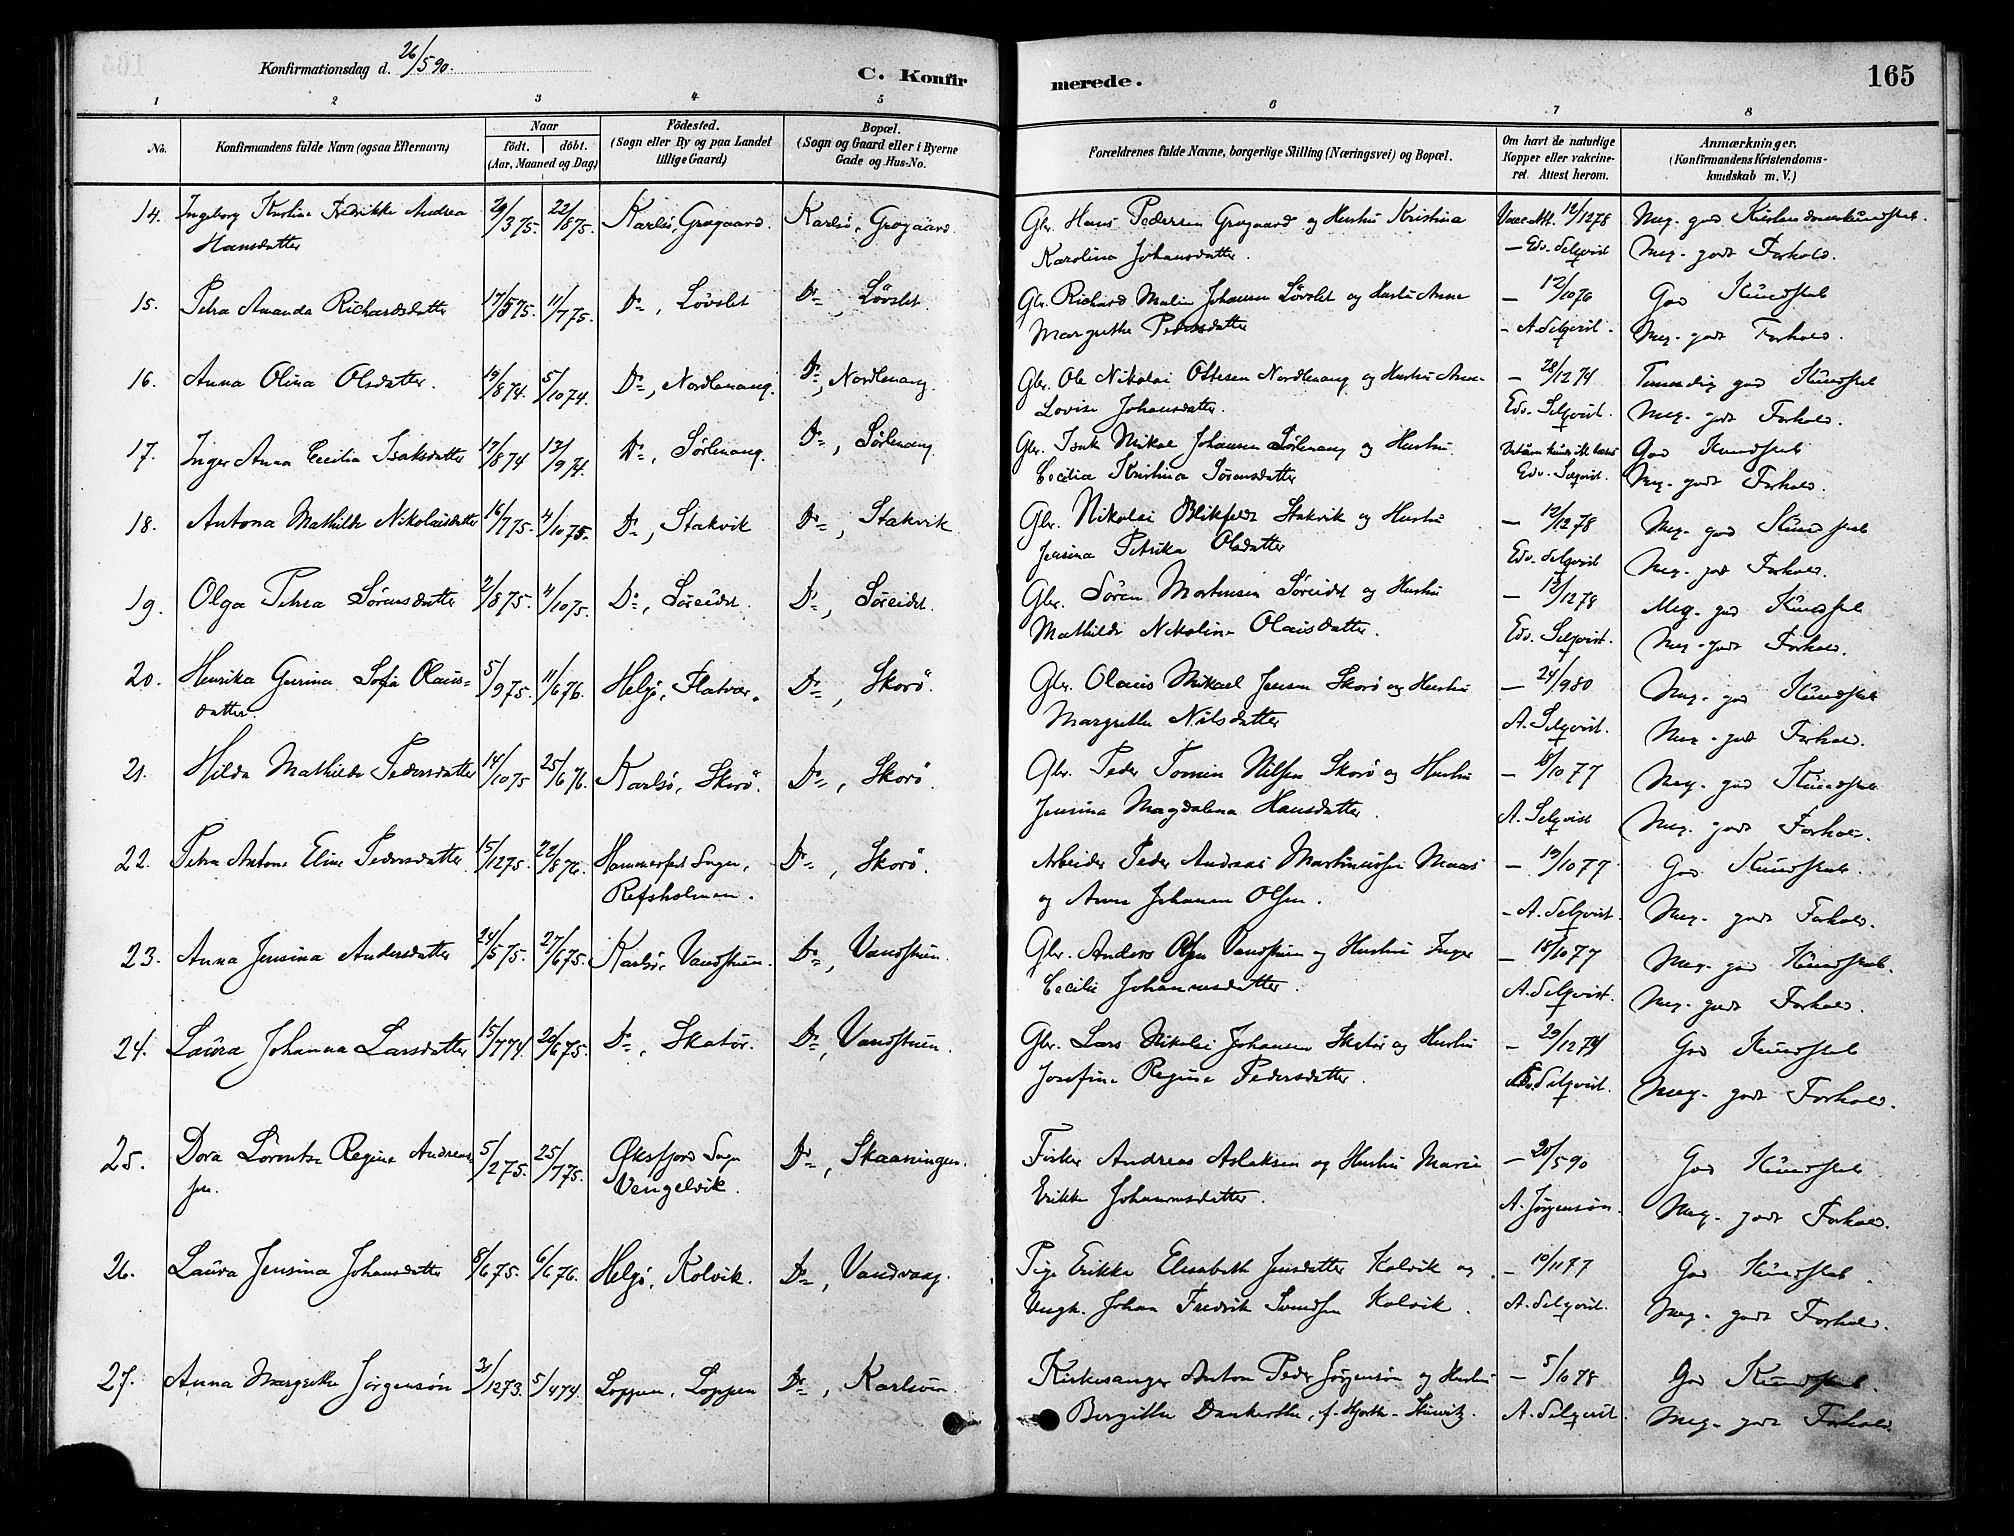 Konfirmationsdag d. 26/5 90.
C. Konfirmerede.
165
1 2 3 4 5 6 7 8
No.
Konfirmandens fulde Navn (ogsaa Efternavn)
Naar
født. døbt.
(Aar, Maaned og Dag)
Födested.
(Sogn eller By og paa Landet
tillige Gaard)
Bopæl.
(Sogn og Gaard eller i Byerne
Gade og Hus-No.
Forældrenes fulde Navne, borgerlige Stilling (Næringsvei) og Bopæl.
Om havt de naturlige
Kopper eller vakcine-
ret. Attest herom.
Anmærkninger.
(Konfirmandens Kristendoms-
kundskab m. V.)
14. Ingeborg Kristine Fredrikke Andrea 29/3 75. 22/8 75. Karlsö, Grøgaard. Karlsö, Grøgaard. Gbr. Hans Pedersen Grøgaard og Hustru Kristina Vacc.att. 12/12 78 Meg. god Kristendomskundskab.
Hansdatter Karolina Johansdatter. – Edv. Selqvist Meg. godt Forhold.
15. Petra Amanda Richardsdatter 17/5 75. 11/7 75. Do, Løvslet Do, Løvslet Gbr. Richard Malin Johansen Løvslet og Hustru Anne – 12/10 76 God Kundskab
Margrethe Pedersdatter – A. Selqvist. Meg. godt Forhold.
16. Anna Olina Olsdatter. 19/8 74. 5/10 74. Do, Nordlenang. Do, Nordlenang. Gbr. Ole Nikolai Ottesen Nordlenang og Hustru Anne – 28/12 74 Temmelig god Kundskab
Lovise Johansdatter. Edv. Selqvist. Meg. godt Forhold.
17. Inger Anna Cecilia Isaksdatter 17/8 74 13/9 74. Do, Sørlenang. Do, Sørlenang Gbr. Isak Mikal Johansen Sørlenang og Hustru God Kundskab
Cecilia Kristina Sørensdatter Edv. Selqvist. Meg. godt Forhold.
18. Antona Mathilde Nikolaisdatter 16/7 75. 4/10 75. Do, Stakvik Do, Stakvik Gbr. Nikolai Blikfeldt Stakvik og Hustru – 12/12 78 Meg. god Kundskab
Jensina Petrika Olsdatter Edv. Selqvist Meg. godt Forhold.
19. Olga Petra Sørensdatter 2/8 75. 4/10 75. Do, Søreidet Do, Søreidet. Gbr. Sören Mortensen Søreidet og Hustru – 12/12 78 Meg. god Kundskab
Mathilde Nikoline Olaisdatter. Edv. Selqvist. Meg. godt Forhold.
20. Henrika Gurina Sofia Olaus- 5/9 75. 11/6 76. Helgø, Flatvær. Do, Skorö. Gbr. Olaus Mikael Jensen Skorö og Hustru – 24/9 80 Meg. god Kundskab
datter. Margrethe Nilsdatter A. Selqvist. Meg. godt Forhold.
21. Hilda Mathilde Pedersdatter 14/10 75 25/6 76. Karlsö, Skorö. Do, Skorö. Gbr. Peder Tomin Nilsen Skorö og Hustru – 18/10 77 Meg. god Kundskab
Jensina Magdalena Hansdatter. A. Selqvist Meg. godt Forhold.
22. Petra Antone Eline Pedersdatter 15/12 75. 22/8 76. Hammerfest Sogn, Do, Skorö. Arbeider Peder Andreas Martinussen Maas – 19/10 77 God Kundskab.
Refsholmen. og Anna Johanna Olsen. – A. Selqvist. Meg. godt Forhold.
23. Anna Jensina Andersdatter 24/5 75. 27/6 75. Karlsö, Vandstuen. Do, Vandstuen. Gbr. Anders Olsen Vandstuen og Hustru Inger – 18/10 77 Meg. god Kundskab.
Cecilie Johannesdatter. A. Selqvist. Meg. godt Forhold.
24. Laura Johanna Larsdatter 15/7 74. 20/6 75. Do, Skatør. Do, Vandstuen. Gbr. Lars Nikolai Johansen Skatør og Hustru – 29/12 74 God Kundskab
Josefine Regine Pedersdatter. Edv. Selqvist. Meg. godt Forhold.
25. Dora Lorentse Regine Andreas- 5/2 75. 25/7 75. Øksfjord Sogn Do, Skaaningen. Fisker Andreas Aslaksen og Hustru Marie – 20/5 90 God Kundskab
sen. Vengelvik. Erikke Johannesdatter. A. Jørgensøn. Meg. godt Forhold.
26. Laura Jensina Johansdatter 8/6 75. 6/6 76. Helgö, Kolvik. Do, Vandvaag. Pige Erikke Elisabeth Jensdatter Kolvik og – 10/11 77 God Kundskab.
Ungk. Johan Fredrik Svendsen Kolvik. A. Selqvist. Meg. godt Forhold.
27. Anna Margrethe Jørgensön 31/12 73. 5/4 74. Loppen, Loppen Do, Karlsöen. Kirkesanger Anton Peder Jörgensön og Hustru – 5/10 78 God Kundskab.
Bergitte Dankertke, f. Hjorth-Hurvitz. A. Selqvist. Meg. godt Forhold.